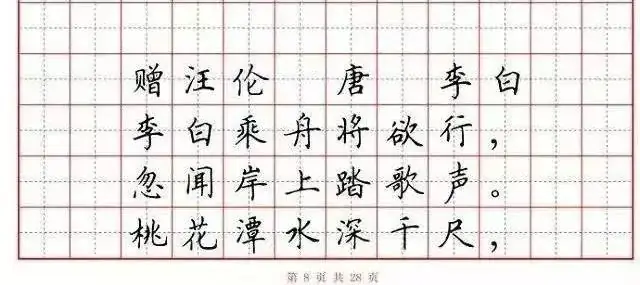 赠汪伦 唐 李白
李白乘舟将欲行，
忽闻岸上踏歌声。
桃花潭水深千尺，
第 8 页 共 28 页